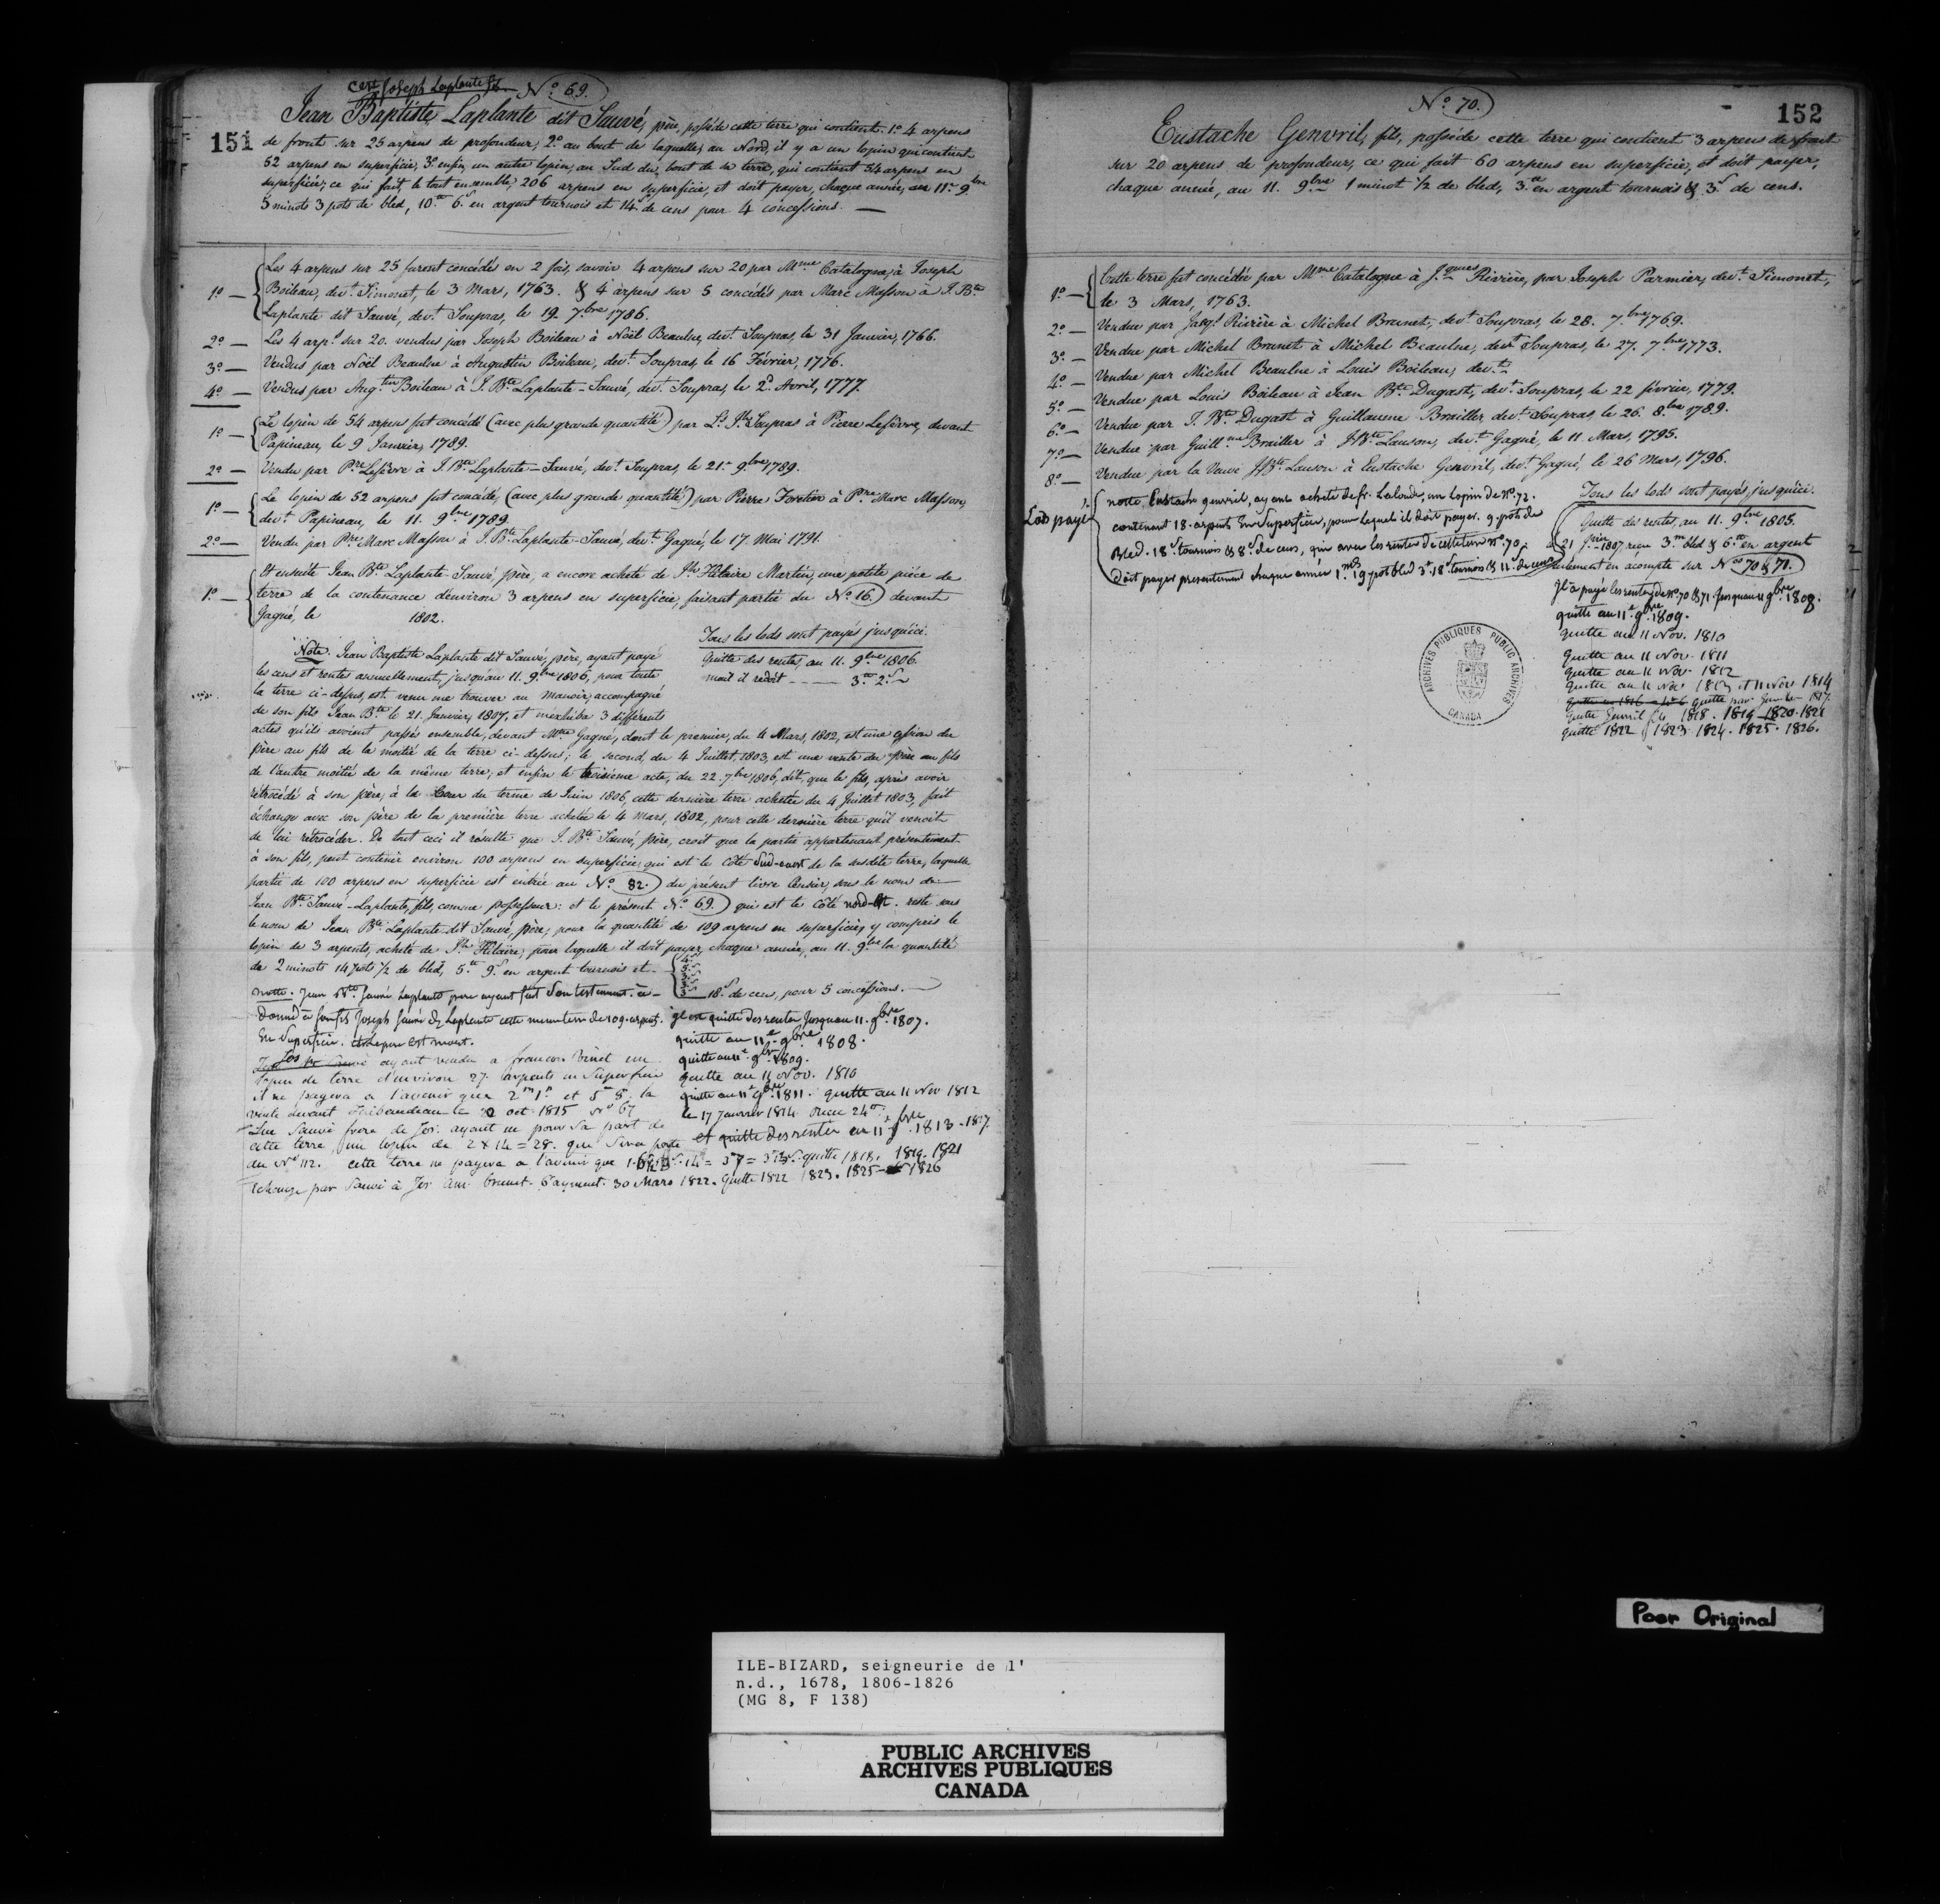 151
C'est Joseph Laplante fils No. 69.
Jean Baptiste Laplante dit Sauvé, père, possède cette terre qui contient 1º 4 arpens
de front sur 25 arpens de profondeur; 2º au bout de laquelle, au Nord, il y a un lopin qui contient
52 arpens en superficie; 3º enfin, un autre lopin, au Sud du bout de sa terre, qui contient 54 arpens en
superficie; ce qui fait, le tout ensemble, 206 arpens en superficie, et doit payer, chaque année, au 11. 9bre
5 minots 3 pots de bled, 10tt 6s en argent tournois et 14s de cens pour 4 concessions. —
1º — Les 4 arpens sur 25 furent concédés en 2 fois, savoir 4 arpens sur 20 par Mme Catalogne, à Joseph
Boileau, devt. Simonet, le 3 Mars, 1763. & 4 arpens sur 5 concédés par Marc Masson à J. Bte
Laplante dit Sauvé, devt. Soupras, le 19. 7bre 1786.
2º — Les 4 arps. sur 20. vendus par Joseph Boileau à Noël Beaulne, devt. Soupras, le 31 Janvier, 1766.
3º — Vendus par Noël Beaulne à Augustin Boileau, devt. Soupras, le 16 Février, 1776.
4º — Vendus par Augtin Boileau à J. Bte Laplante-Sauvé, devt. Soupras, le 2d. Avril, 1777.
1º — Le lopin de 54 arpens fut concédé (avec plus grande quantité) par Ls. Jh. Soupras à Pierre Lefèvre, devant
Papineau, le 9 Janvier, 1789.
2º — Vendu par Prre Lefèvre à J. Bte Laplante-Sauvé, devt. Soupras, le 21. 9bre 1789.
1º — Le lopin de 52 arpens fut concédé, (avec plus grande quantité) par Pierre Foretier à Prre Marc Masson,
devt. Papineau, le 11. 9bre 1789.
2º — Vendu par Prre Marc Masson à J. Bte Laplante-Sauvé, devt. Gagné, le 17 Mai 1791.
1º — Et ensuite Jean Bte Laplante-Sauvé, père, a encore acheté de Jh. Hilaire Martin, une petite pièce de
terre de la contenance d'environ 3 arpens en superficie, faisant partie du No. 16. devant
Gagné, le 1802.
Tous les lods sont payés jusqu'ici.
Quitte des rentes, au 11. 9bre 1806.
mais il redoit - - - — 3tt 2s
Note. Jean Baptiste Laplante dit Sauvé, père, ayant payé
les cens et rentes annuellement, jusqu'au 11. 9bre 1806, pour toute
la terre ci-dessus, est venu me trouver au manoir, accompagné
de son fils Jean Bte le 21. Janvier, 1807, et m'exhiba 3 différents
actes qu'ils avoient passés ensemble, devant Mtre Gagné, dont le premier, du 4 Mars, 1802, est une cession du
père au fils de la moitié de la terre ci-dessus; le second, du 4 Juillet, 1803, est une vente du père au fils
de l'autre moitié de la même terre, et enfin le troisième acte, du 22. 7bre 1806, dit, que le fils, après avoir
rétrocédé à son père, à la Cour du terme de Juin 1806, cette dernière terre achetée du 4 Juillet 1803, fait
échange avec son père de la première terre achetée le 4 Mars, 1802, pour cette dernière terre qu'il venoit
de lui rétrocéder. De tout ceci il résulte que J. Bte Sauvé, père, croit que la partie appartenant présentement
à son fils, peut contenir environ 100 arpens en superficie, qui est le côté Sud-ouest de la susdite terre, laquelle
partie de 100 arpens en superficie est entrée au No. 82. du présent livre Censier, sous le nom de —
Jean Bte Sauvé-Laplante, fils, comme possesseur: et le présent No. 69. qui est le côté nord-Est. reste sous
le nom de Jean Bte Laplante dit Sauvé, père, pour la quantité de 109 arpens en superficie, y compris le
lopin de 3 arpents, acheté de Jh. Hilaire, pour laquelle il doit payer, chaque année, au 11. 9bre la quantité
de 2 minots 14 pots 1/2 de bled, 5tt 9s en argent tournois et
18s de cens, pour 5 concessions. —
notte. Jean Bte Sauvé Laplante pere ayant fait son testement. à
Donné à son fils Joseph Sauvé dt Laplante cette meme terre de 109. arpents.
En Superficie. est mort.
il est quitte des rentes Jusquau 11. 9bre 1807.
quitte au 11e 9bre 1808.
quitte au 11e 9bre 1809.
quitte au 11 Nov. 1810
quitte au 11e 9bre 1811. quitte au 11 Nov 1812
le 17 Janvier 1814. Recu 24tt
et quitte des rentes au 11e 9bre 1813 - 1817
Jos Sauvé ayant vendu a francois Binet un
lopin de terre d'environ 27 arpents en Superficie
il ne payera a l'avenir que 2m 1p et 5tt 8s la
vente devant Thibaudeau le 2 oct 1815 No 67
Luc Sauvé frere de Jos. ayant eu pour sa part de
cette terre, un lopin de 2 x 14 = 28. que sera porté
du No 112. cette terre ne payera a l'avenir que quitte 1818. 1819. 1821
Echange par Sauvé à Jos Brunet - Payment. 30 Mars 1822. Quitte 1822 1823. 1825 - 1826
152
No. 70.
Eustache Genvril, fils, possède cette terre qui contient 3 arpens de front
sur 20 arpens de profondeur, ce qui fait 60 arpens en superficie, et doit payer,
chaque année, au 11. 9bre 1 minot 1/2 de bled, 3tt en argent tournois & 3s de cens.
1º — Cette terre fut concédée par Mme Catalogne à Jques Rivière, par Joseph Parmier, devt. Simonet,
le 3 Mars, 1763.
2º — Vendue par Jaqs. Rivière à Michel Brunet, devt. Soupras, le 28. 7bre 1769.
3º — Vendue par Michel Brunet à Michel Beaulne, devt. Soupras, le 27. 7bre 1773.
4º — Vendue par Michel Beaulne à Louis Boileau, devt.
5º — Vendue par Louis Boileau à Jean Bte Dugast, devt. Soupras, le 22 février, 1779.
6º — Vendue par J. Bte Dugast à Guillaume Brailler, devt. Soupras, le 26. 8bre 1789.
7º — Vendue par Guillme Brailler à J. Bte Lauson, devt. Gagné, le 11. Mars, 1795.
8º — Vendue par la Veuve J. Bte Lauson à Eustache Genvril, devt. Gagné, le 26 Mars, 1796.
Lods payé
notte Eustache genvril, ayant acheté de fr. Lalonde, un lopin de No. 72.
contenant 18. arpents En Superficie, pour lequel il doit payer. 9 pots de
Bled. 18s tournois & 8s de cens, qui avec les rentes de cette terre No. 70,
doit payer presentement chaque année 1mot 19 pots bled 3tt 18s tournois & 11s de cens
Tous les lods sont payés jusqu'ici.
Quitte des rentes, au 11. 9bre 1805.
21 juin 1807, reçu 3m bled & 6tt en argent
seulement en acompte sur Nos 70 & 71.
Il a payé les rentes de No. 70 & 71. Jusquau 11 9bre 1808.
quitte au 11e 9bre 1809.
quitte au 11 Nov. 1810
Quitte au 11 Nov. 1811
quitte au 11 Nov. 1812
quitte au 11 Nov. 1813 et 11 Nov 1814
quitte 1817
quitte Genvril 1818. 1819 - 1820 - 1821
quitte 1822 1823. 1824. 1825. 1826.
ARCHIVES PUBLIQUES PUBLIC ARCHIVES
CANADA
Poor Original
ILE-BIZARD, seigneurie de l'
n.d., 1678, 1806-1826
(MG 8, F 138)
PUBLIC ARCHIVES
ARCHIVES PUBLIQUES
CANADA